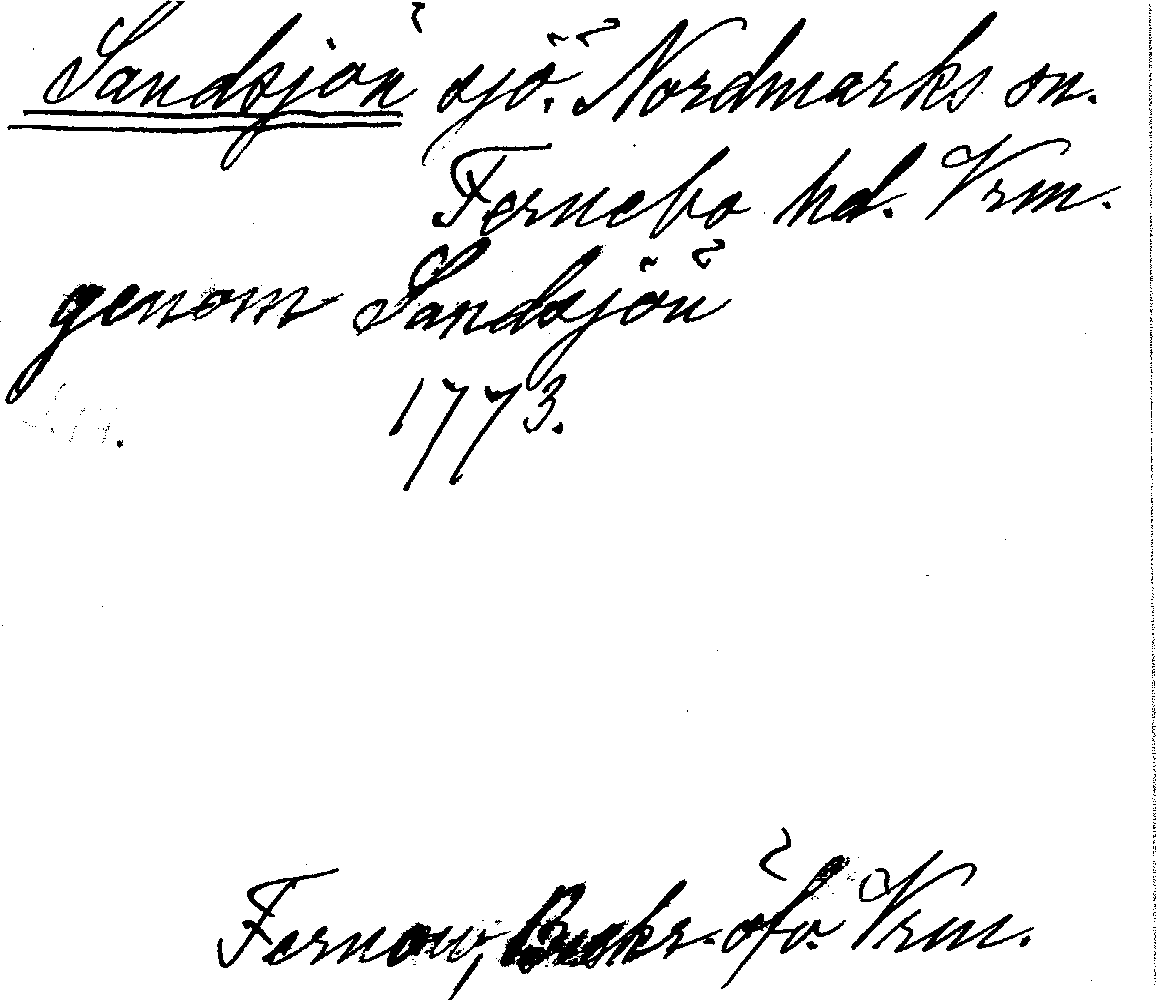 Sandsjön sjö. Nordmarks sn.
Fernebo hd. Vrm.
genom Sandsjön
1773.
Fernow, Beskr. öfv. Vrm.